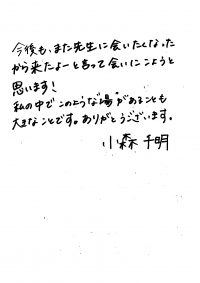 今後も、また先生に会いたくなった
から来たよーと言って会いにこようと
思います!
私の中でこのような“場”があることも
大きなことです。ありがとうございます。
小森千明